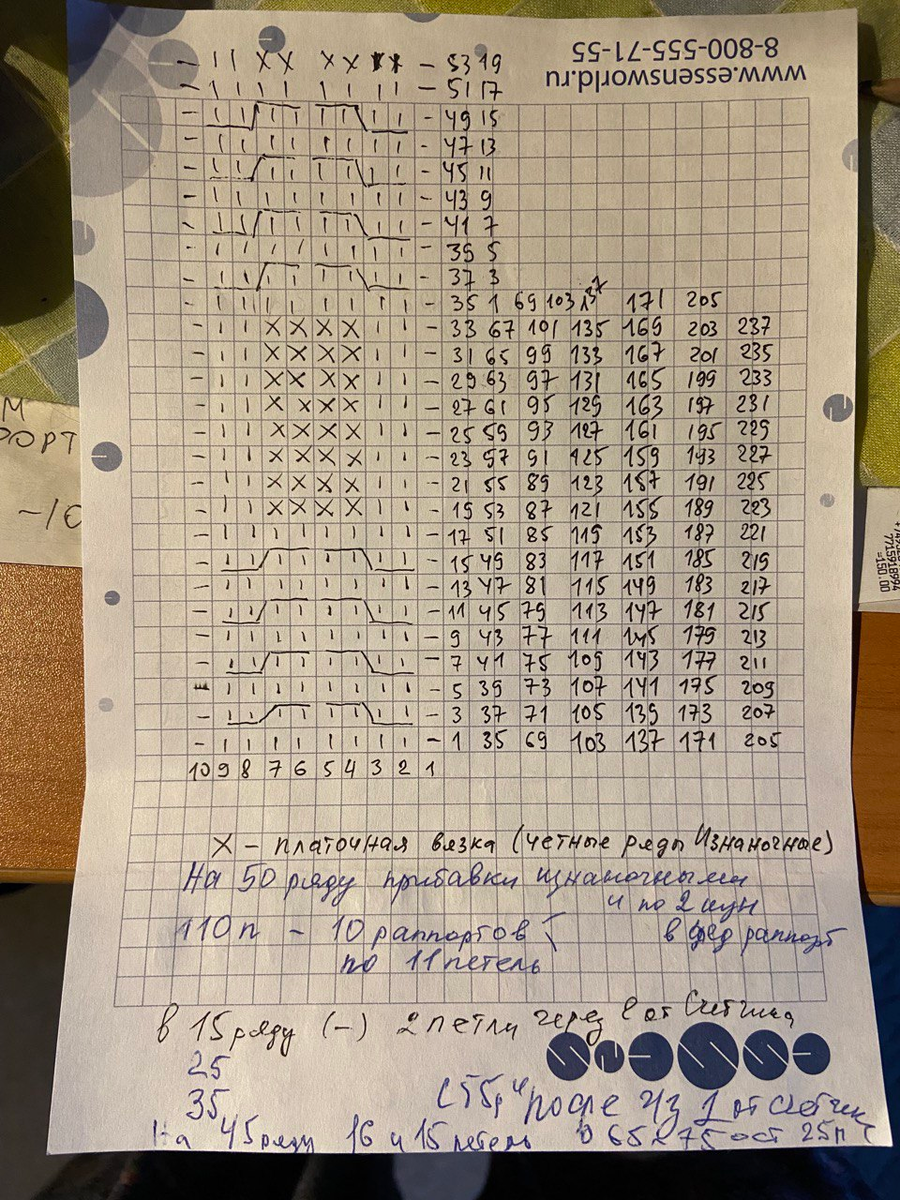 www.essensworld.ru
8-800-555-71-55
- | | X X X X X X - 53 19
- | | | | | | | | - 51 17
- | | | | | | | | - 49 15
- | | | | | | | | - 47 13
- | | | | | | | | - 45 11
- | | | | | | | | - 43 9
- | | | | | | | | - 41 7
| | | | | | | | - 39 5
- | | | | | | | | - 37 3
- | | | | | | | | - 35 1 69 103 137 171 205
- | | X X X X | | - 33 67 101 135 169 203 237
- | | X X X X | | - 31 65 99 133 167 201 235
- | | X X X X | | - 29 63 97 131 165 199 233
- | | X X X X | | - 27 61 95 129 163 197 231
- | | X X X X | | - 25 59 93 127 161 195 229
- | | X X X X | | - 23 57 91 125 159 193 227
- | | X X X X | | - 21 55 89 123 157 191 225
- | | X X X X | | - 19 53 87 121 155 189 223
- | | | | | | | | - 17 51 85 119 153 187 221
- | | | | | | | | - 15 49 83 117 151 185 219
- | | | | | | | | - 13 47 81 115 149 183 217
- | | | | | | | | - 11 45 79 113 147 181 215
- | | | | | | | | - 9 43 77 111 145 179 213
- | | | | | | | | - 7 41 75 109 143 177 211
- | | | | | | | | - 5 39 73 107 141 175 209
- | | | | | | | | - 3 37 71 105 139 173 207
- | | | | | | | | - 1 35 69 103 137 171 205
10 9 8 7 6 5 4 3 2 1
X - платочная вязка (четные ряды Изнаночные)
На 50 ряду прибавки изнаночными
и по 2 изн
110 п - 10 раппортов
по 11 петель
в 15 ряду (-) 2 петли через от Счетчика
25
35
после из 1 от Счетчик
На 45 ряду 16 и 15 петель 65 75 ост 25 п